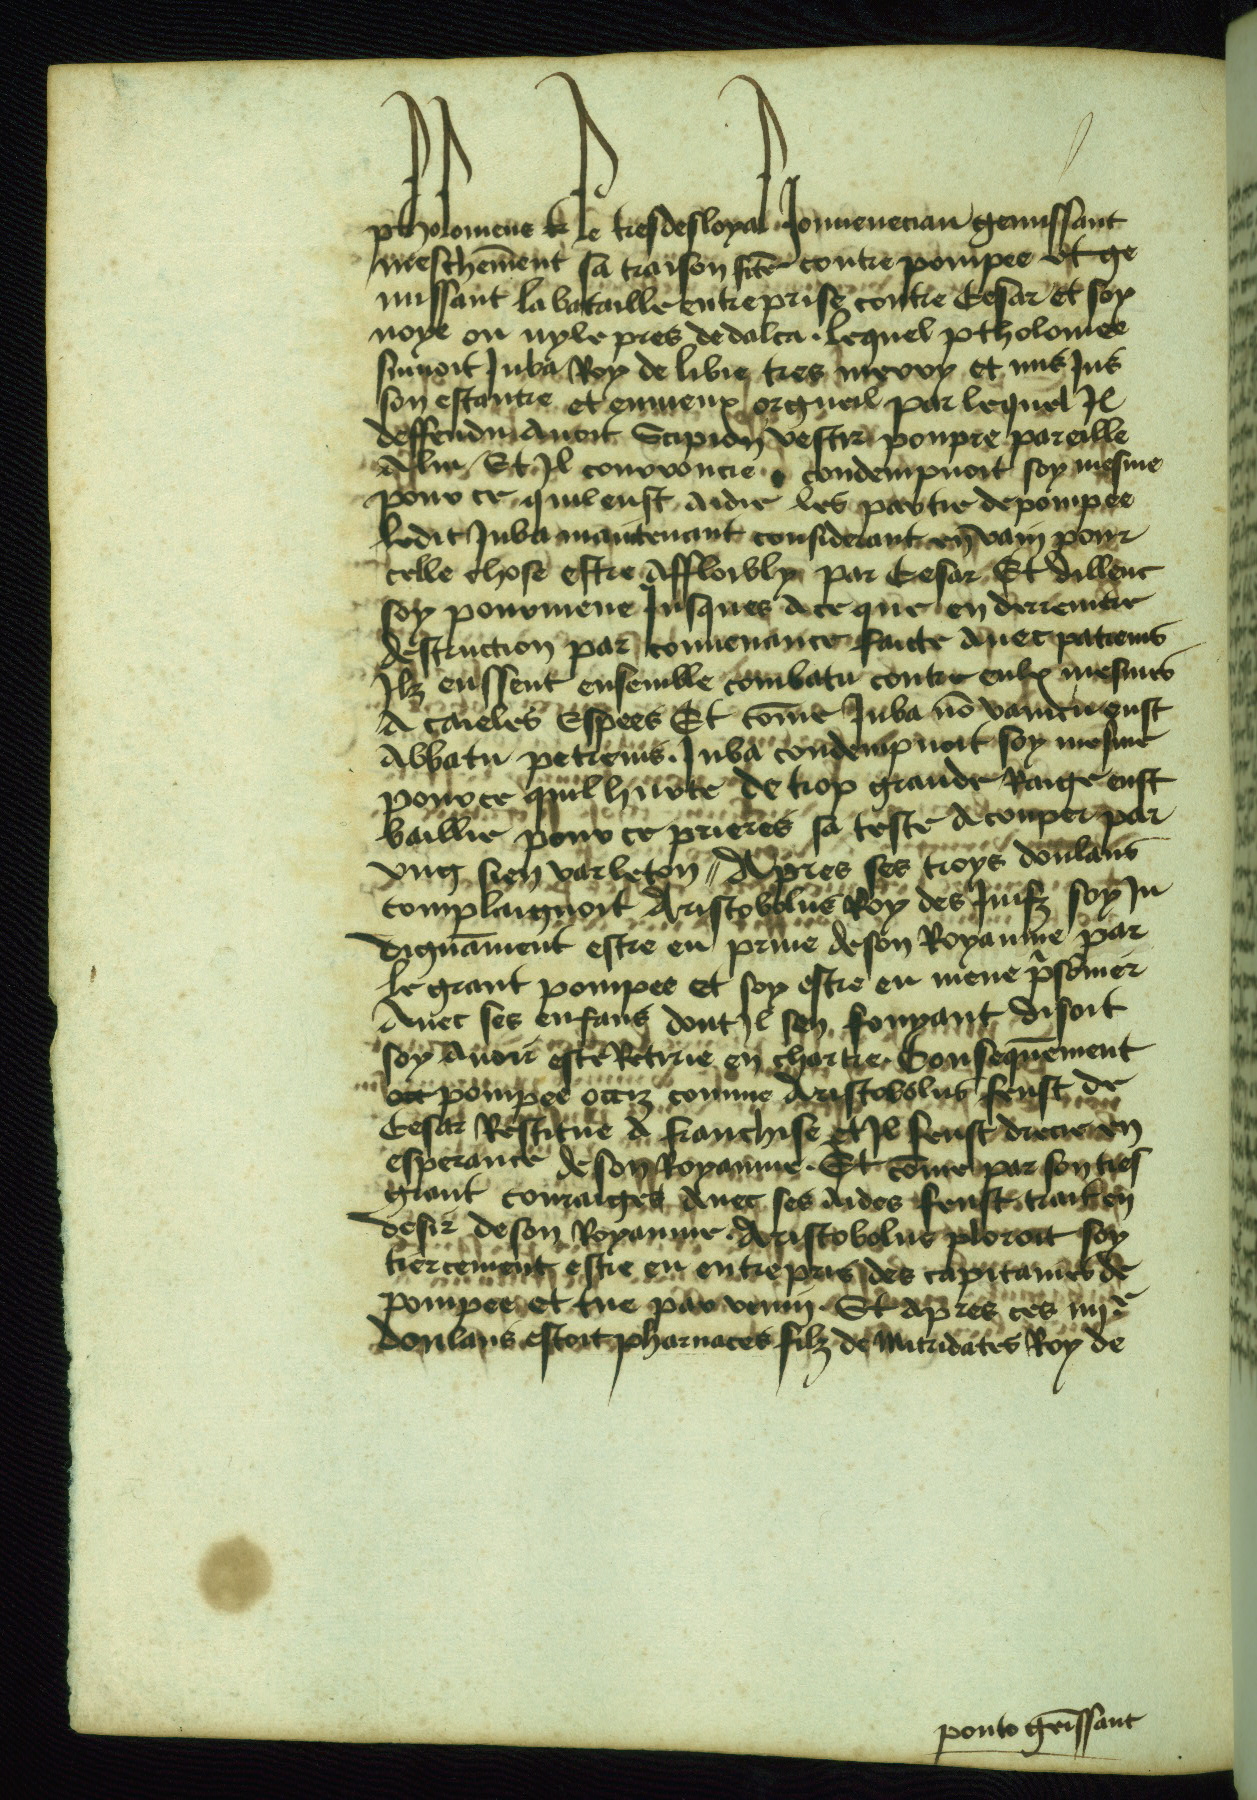 ptholomeus le tresdesloyal Jouuenecian gemissant
meschēment sa traison fcte contre pompee et ge
missant la bataille entreprise contre Cesar et soy
noye ou nyle pres de dalta . lequel ptholomee
suiuoit Juba Roy de libie tres et mis Jus
son estantre et enuieux orgueil par lequel Jl
deffendu auoit Scipion vestir poupre pareille
A luy Et Jl courroucie condempnoit soy mesme
pour ce quil eust aidie les partie de pompee
ledit Juba maintenant considerant en vain pour
celle chose estre Affloibly par Cesar Et dillenc
soy pourmene Jusques A ce que en derreniere
destruction par conuenance faicte Auec patreius
Jlz eussent ensemble combatu contre eulx mesmes
A Espees Et cōme Juba nō vaincu eust
Abbatu petreius . Juba condempnoit soy mesme
pour ce quil hurte de trop grande Raige eust
baillie pour ce prieres sa teste A couper par
vng sien varleton // Apres ses troys doulans
complaignoit Aristobolus Roy des Juifz soy Jn
dignāment estre en priue de son Royaume par
le grant pompee et soy estre en mene psōnier
Auec ses enfans dont Jl sen fouyant disoit
soy Auoir este Retirie en chartre . Consequēment
pompee occiz comme Aristobolus feust de
Cesar Restitue A franchise et Jl feust drecie en
esperance de son Royaume . Et cōme par son tres
grant couraige Auec ses Aides feust trait en
desir de son Royaume . Aristobolus ploroit soy
tiercement estre en entrepris des capitaines de
pompee et tue par venin . Et Apres ces iiij
doulans estoit pharnaces filz de Mitridates Roy de
ponto gēissant